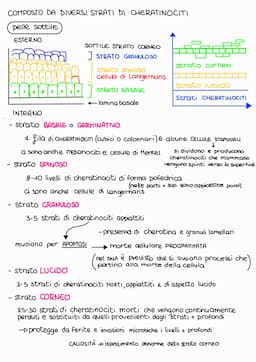 COMPOSTO DA DIVERSI STRATI DI CHERATINOCITI
pelle sottile
ESTERNO
SOTTILE STRATO CORNEO
STRATO GRANULOSO
STRATO SPINOSO
cellula di Langerhans
STRATO BASALE
lamina basale
INTERNO
strato corneo
strato lucido
strati CHERATINOCITI
- strato BASALE o GERMINATIVO
1 fila di CHERATINOCITI (cubici o colonnari) e alcune CELLULE STAMINALI
ci sono anche melanociti e cellule di Merkel
si dividono e producono
cheratinociti che
vengono spinti verso la superficie
- strato SPINOSO
8-10 livelli di cheratinociti di forma poliedrica
(nelle parti + sup. sono appiattite)
ci sono anche cellule di Langerhans
- strato GRANULOSO
3-5 strati di cheratinociti appiattiti
- presenza di cheratina e granuli lamellari
muoiono per APOPTOSI → morte cellulare PROGRAMMATA
(nel DNA è previsto che si avviano processi che
portino alla morte della cellula)
- strato LUCIDO
3-5 strati di cheratinociti morti, appiattiti e di aspetto lucido
- strato CORNEO
25-30 strati di cheratinociti morti che vengono continuamente
perduti e sostituiti da quelli provenienti dagli strati + profondi
→ protegge da ferite e invasioni microbiche i livelli + profondi
CALLOSITÀ → ispessimento abnorme dello strato corneo